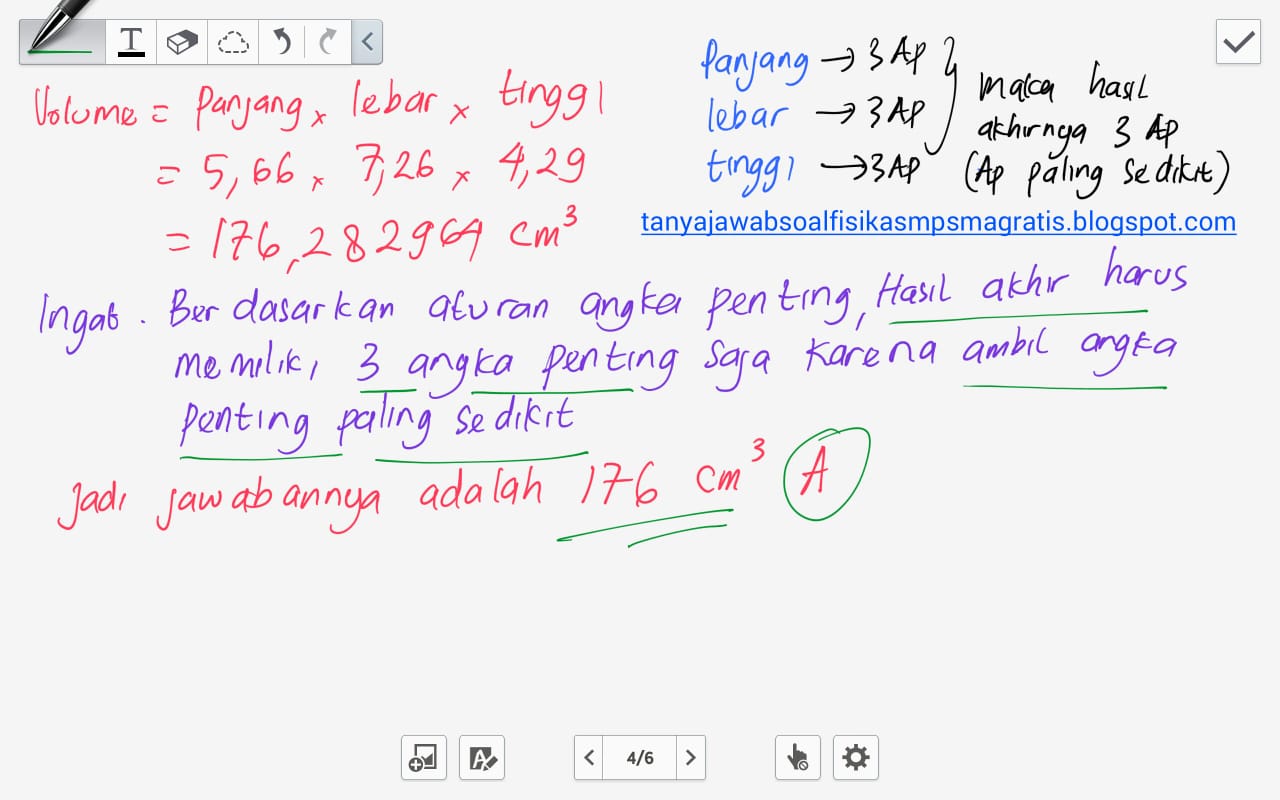 T
Volume = Panjang x lebar x tinggi
= 5,66 x 7,26 x 4,29
= 176,282964 cm³
Panjang → 3 AP
lebar → 3 AP
tinggi → 3 AP
maka hasil
akhirnya 3 AP
(AP paling sedikit)
tanyajawabsoalfisikasmpsmagratis.blogspot.com
Ingat. Berdasarkan aturan angka penting, Hasil akhir harus
memiliki 3 angka penting saja karena ambil angka
penting paling sedikit
Jadi jawabannya adalah 176 cm³ A
A
4/6